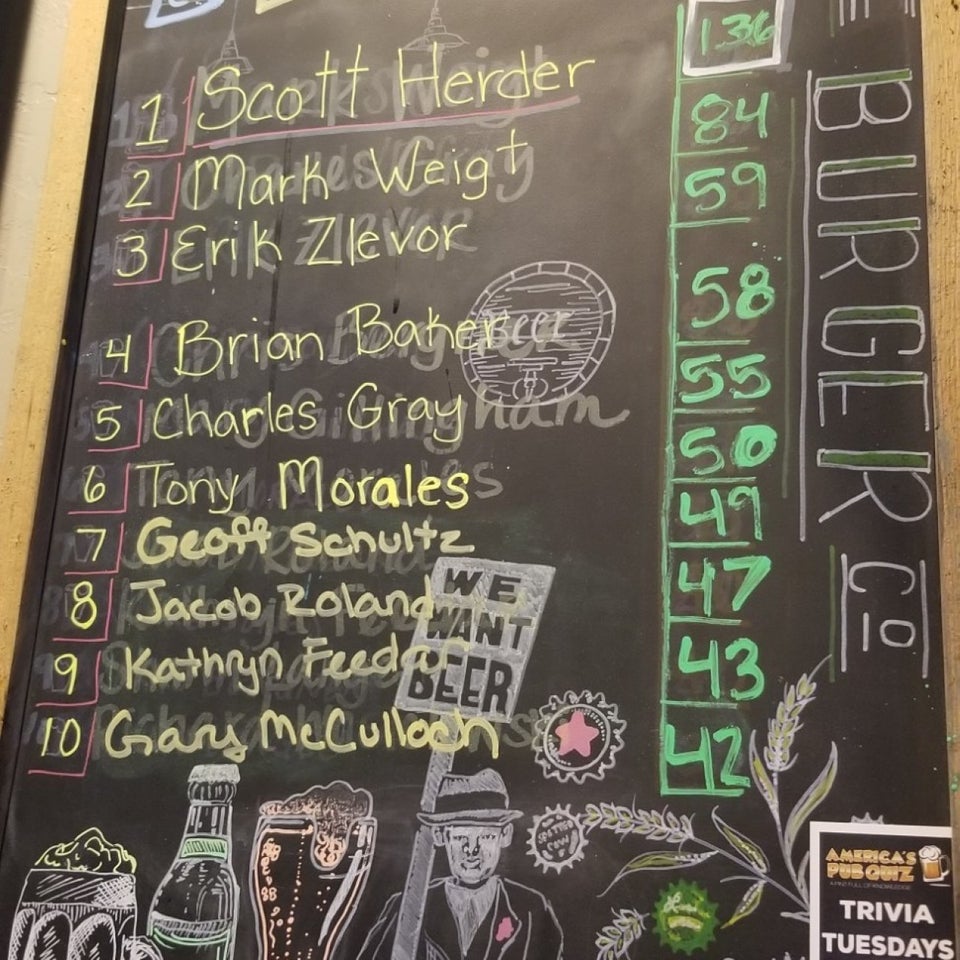 136
1 Scott Herder 84
2 Mark Weigt 59
3 Erik Zlevor 58
4 Brian Baker 55
5 Charles Gray 50
6 Tony Morales 49
7 Geoff Schultz 47
8 Jacob Roland 43
9 Kathryn Feeday 42
10 Gary McCulloch
Beer
WE
WANT
BEER
BURGER CO
AMERICA'S
PUB QUIZ
A MIND FULL OF KNOWLEDGE
TRIVIA
TUESDAYS